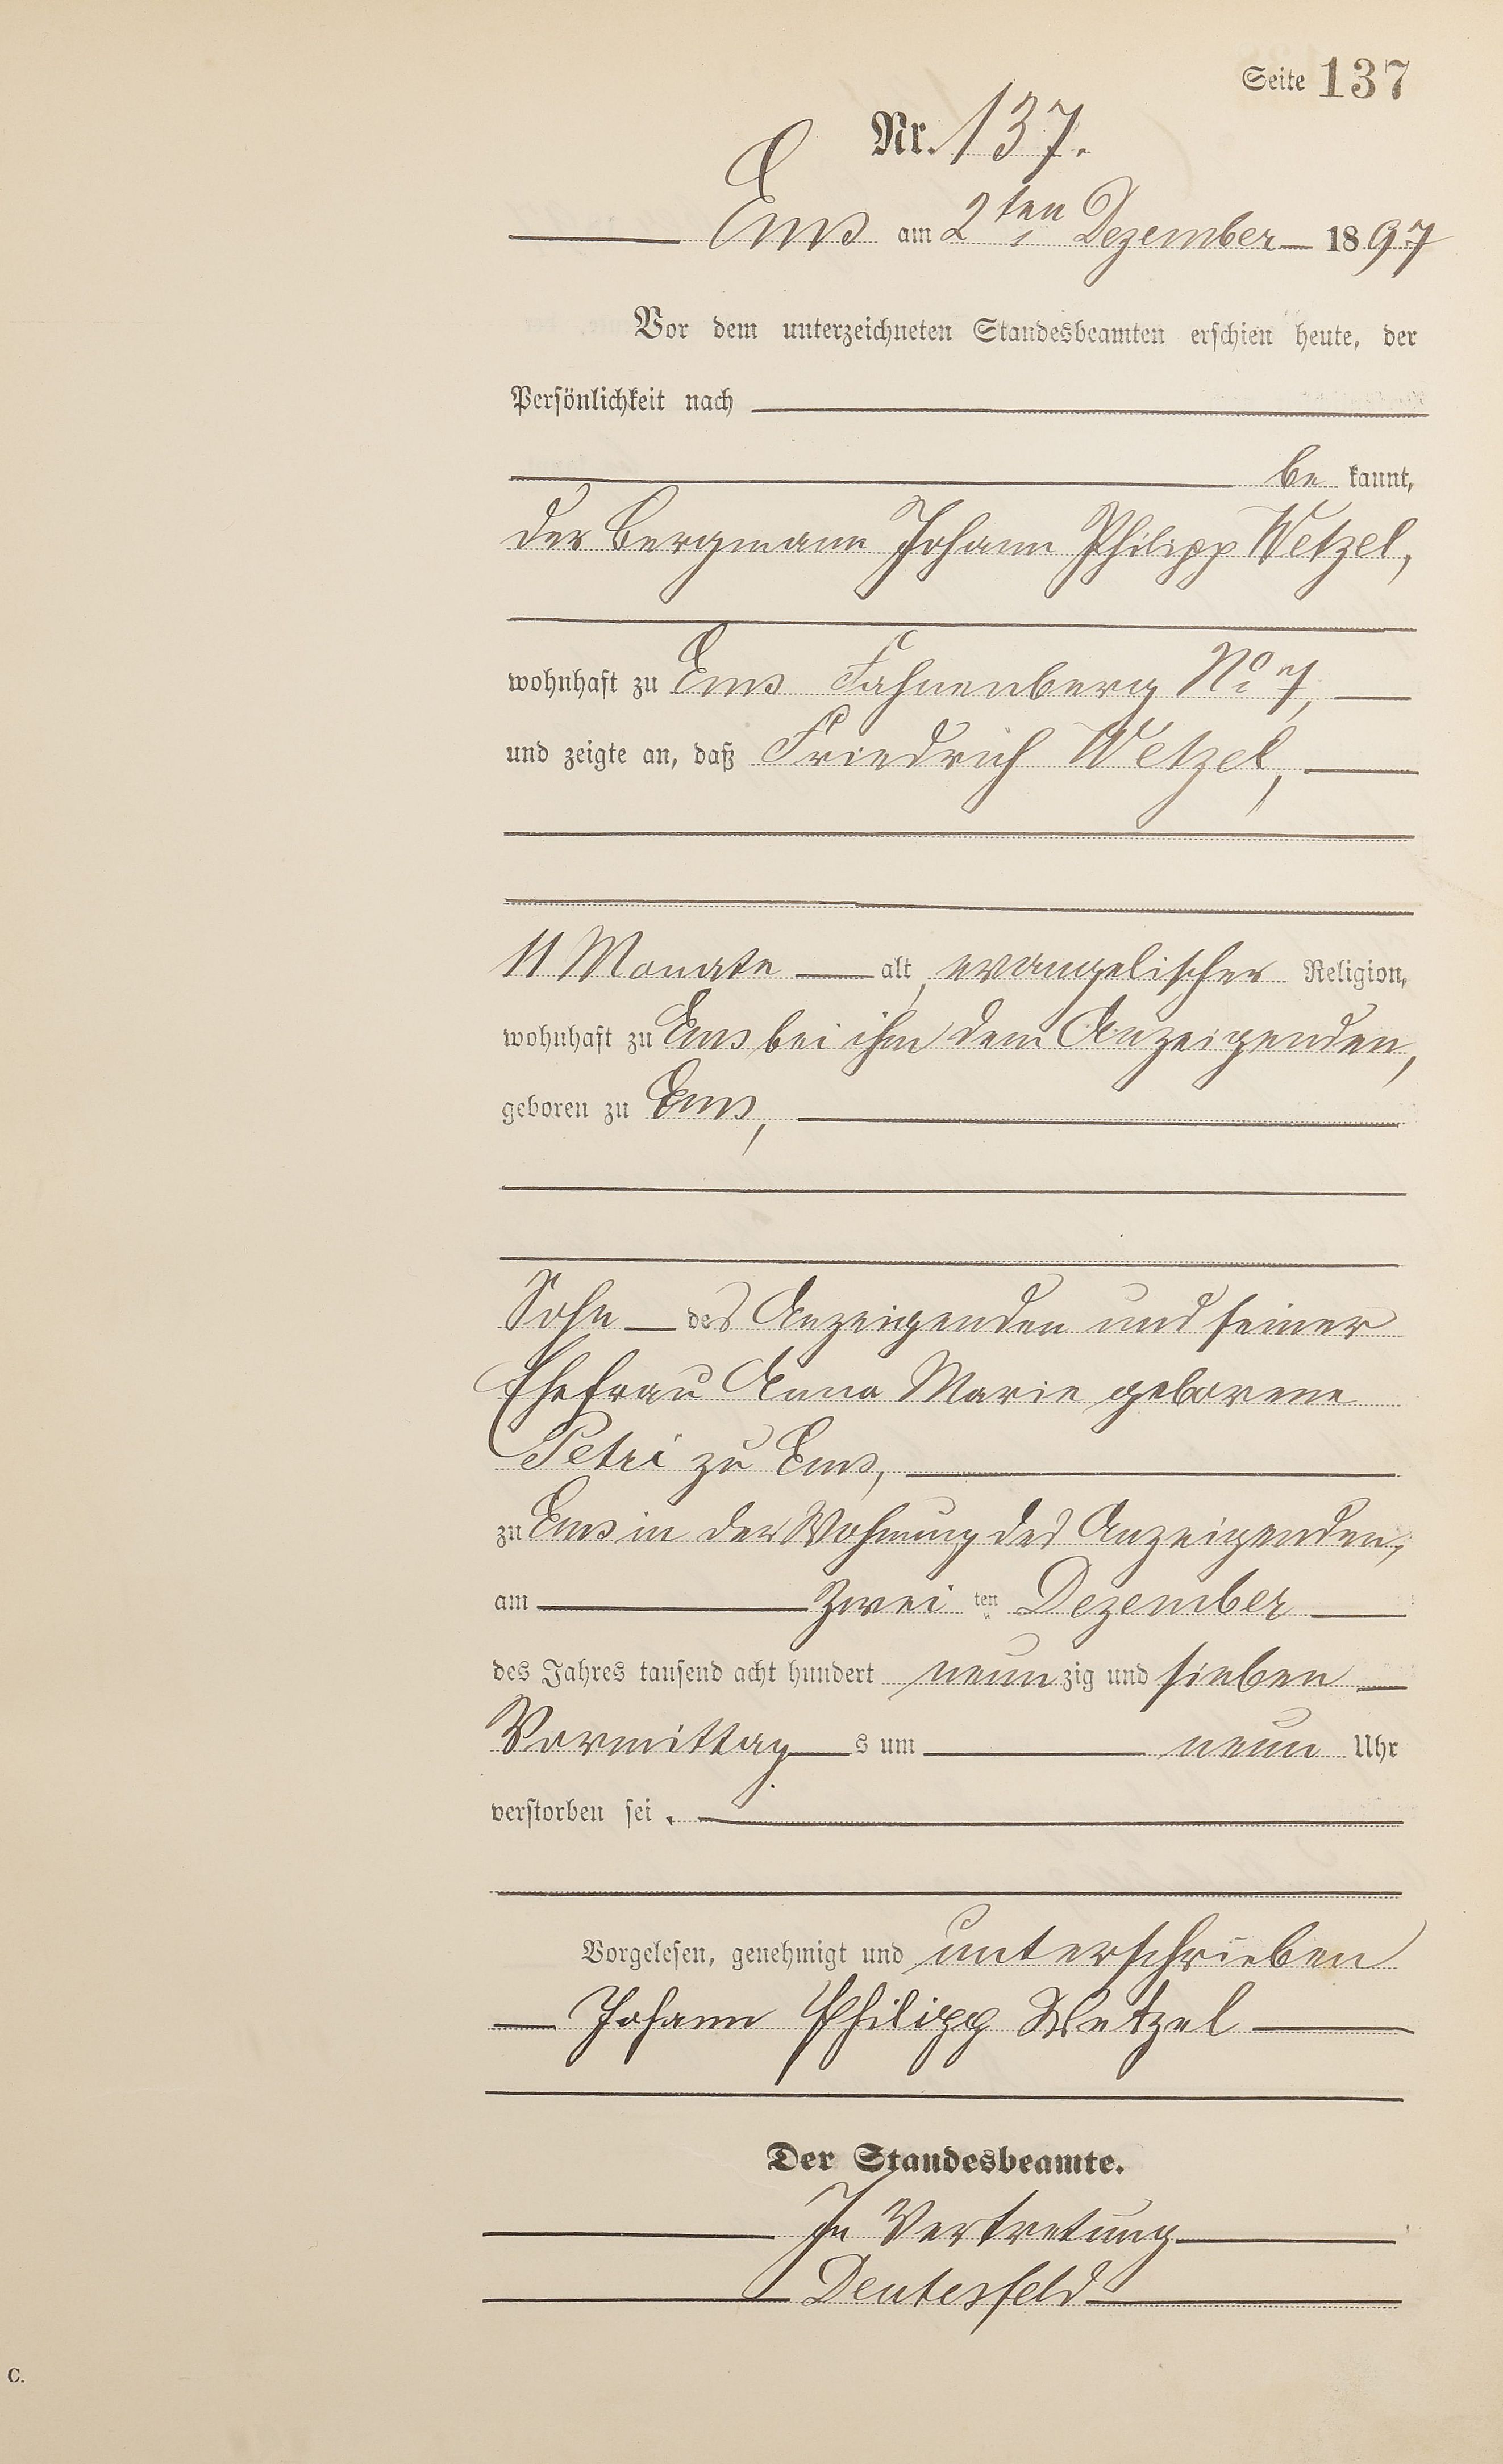 Seite 137
Nr. 137.
Ems am 2ten Dezember 1897
Vor dem unterzeichneten Standesbeamten erschien heute, der
Persönlichkeit nach
be kannt,
der Bergmann Johann Philipp Wetzel,
wohnhaft zu Ems Fahnenberg No 7,
und zeigte an, daß Friedrich Wetzel,
11 Monate alt, evangelischer Religion,
wohnhaft zu Ems bei ihm dem Anzeigenden,
geboren zu Ems,
Sohn des Anzeigenden und seiner
Ehefrau Anna Marie geborene
Petri zu Ems,
zu Ems in der Wohnung des Anzeigenden,
am Zwei ten Dezember
des Jahres tausend acht hundert neun zig und sieben
Vormittag s um neun Uhr
verstorben sei.
Vorgelesen, genehmigt und unterschrieben
Johann Philipp Wetzel
Der Standesbeamte.
In Vertretung
Deutesfeld
C.